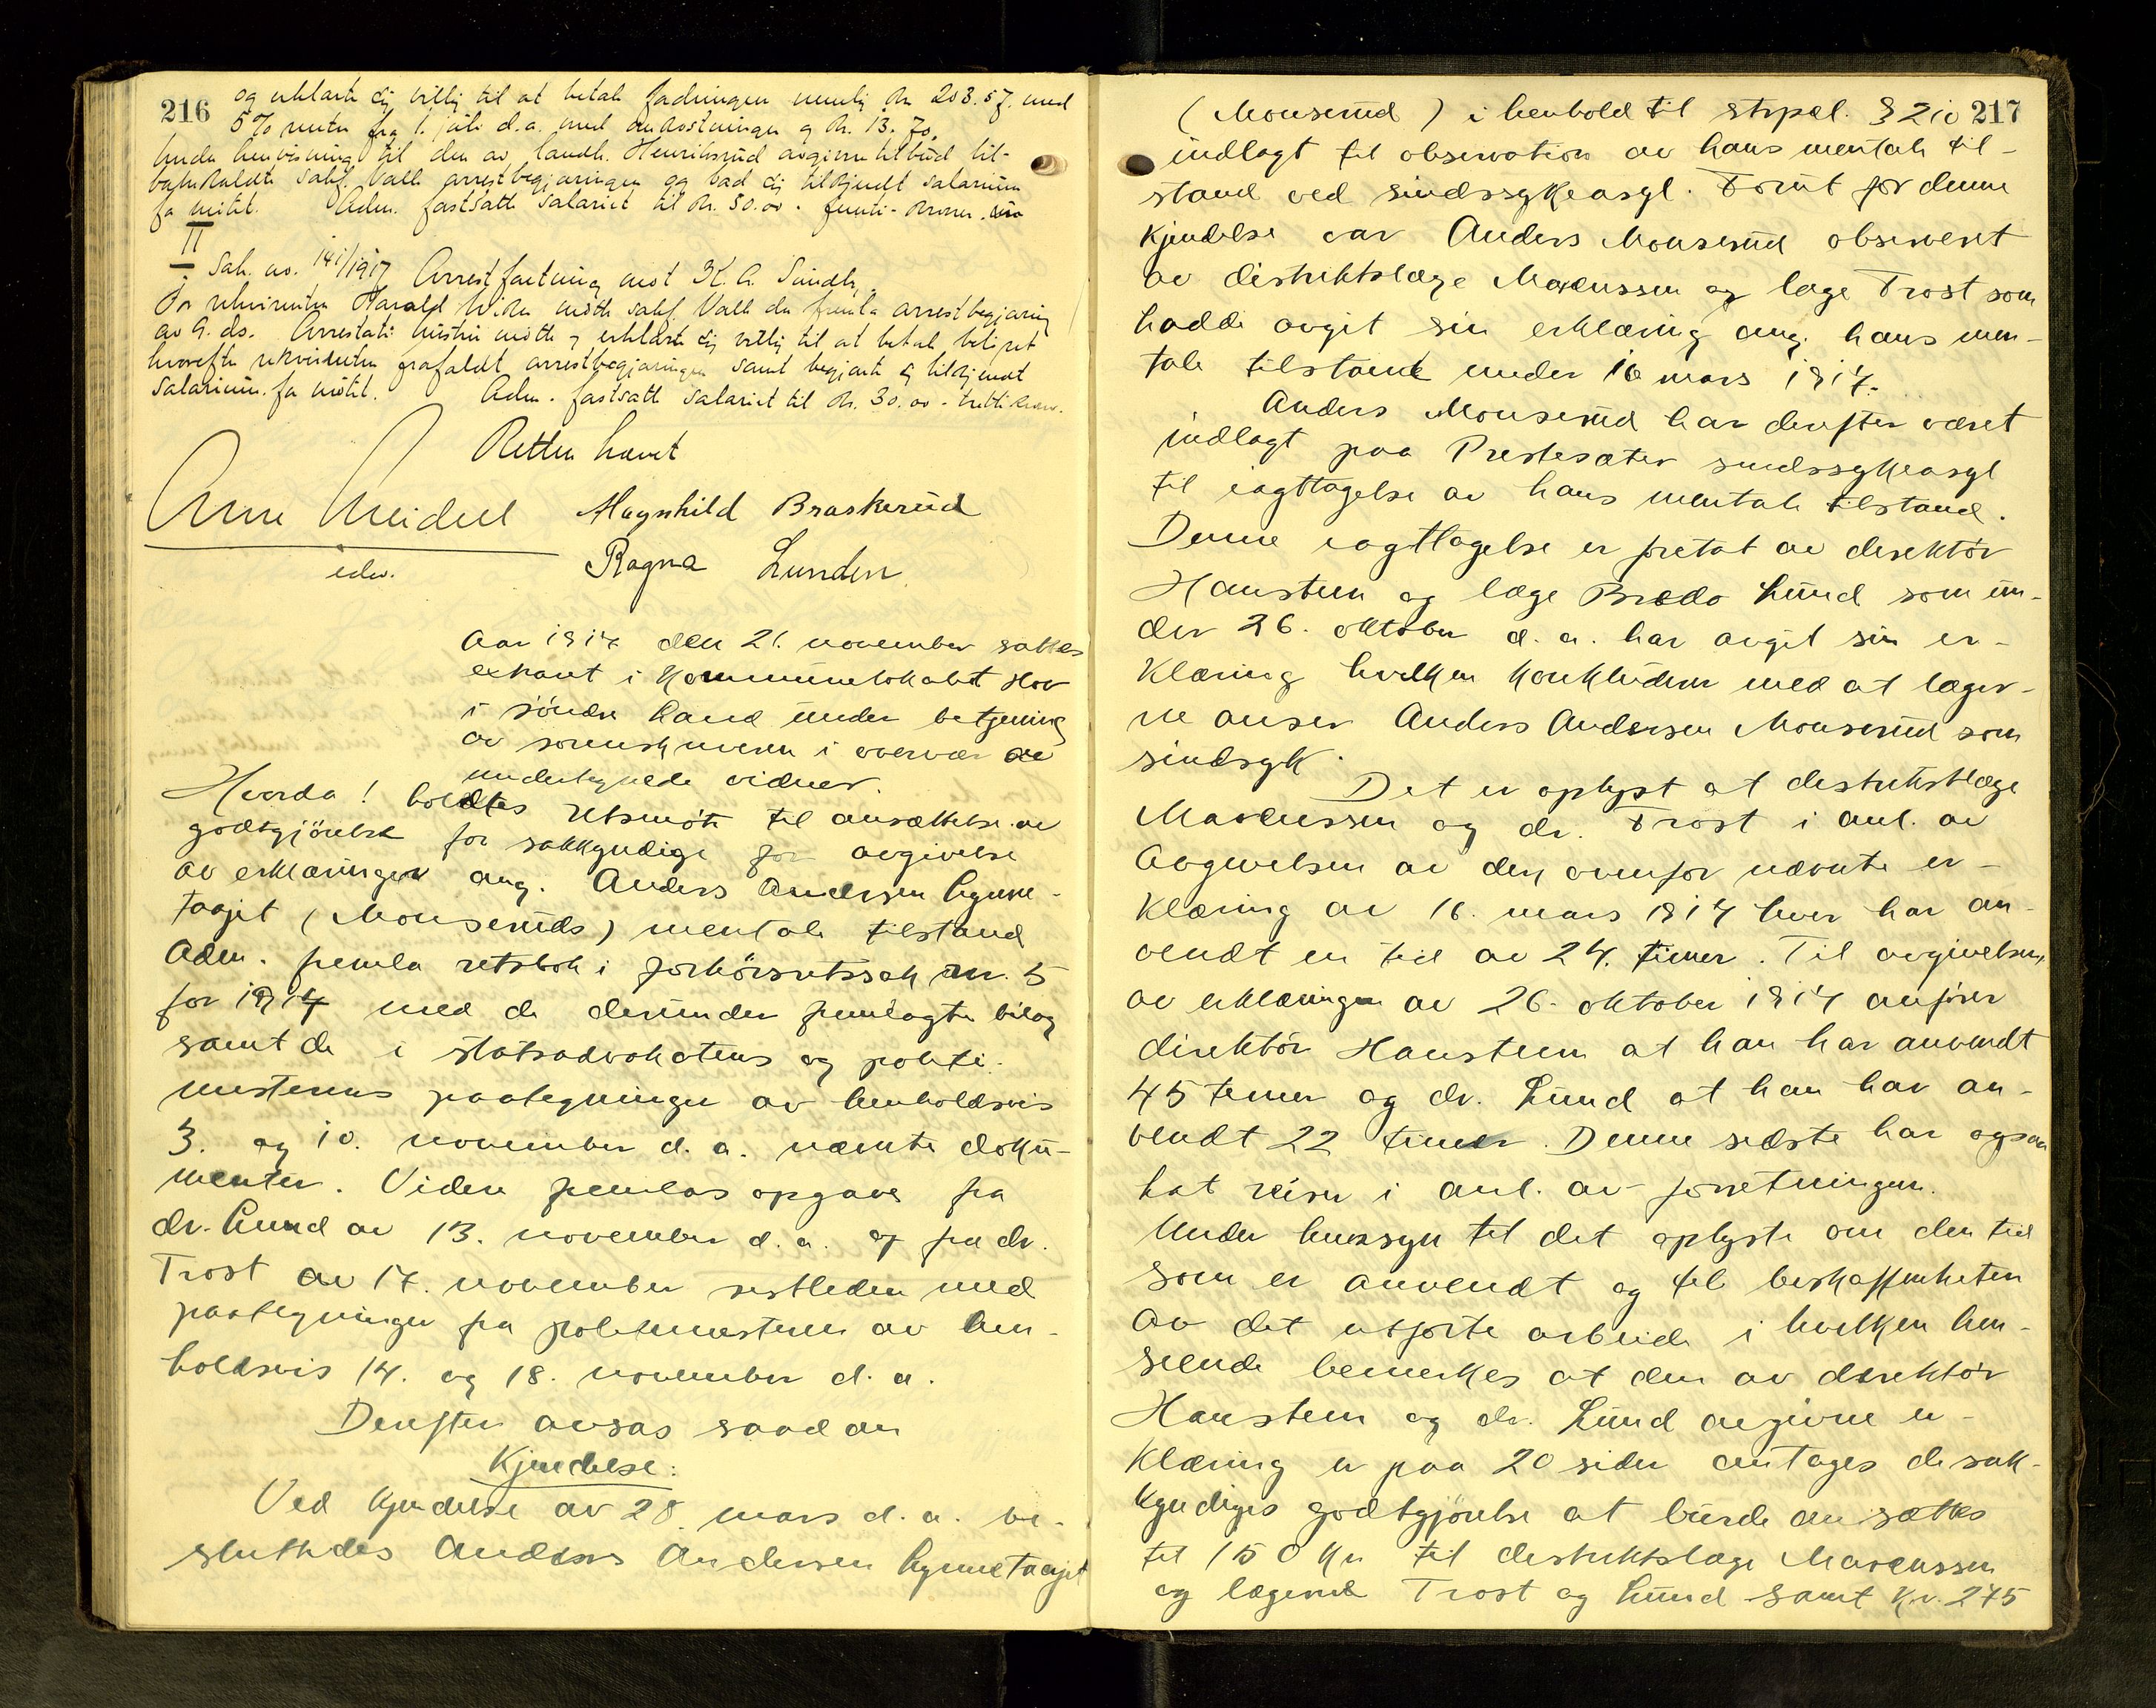 216
og erklærte sig villig til at betale fordringen nemlig kr 203.57. med
5% renter fra 1. juli d.a. med omkostninger kr. 13.70.
Under henvisning til den av landh. Henriksrud avgivne tilbud til-
bakekaldte sakf. Valle arrestbegjæringen og bad sig tilkjendt salarium
fa møtet. Adm. fastsatte salariet til kr. 30.00.
II
Sak. no. 141/1917 Arrestforretning mot K. A. Sundby.
For rekvirenten Harald møtte sakf. Valle der fremla arrestbegjæring
av 9. ds. Arrestati hustru møtte og erklærte sig villig til at betale beløpet
hvorefter rekvirenten frafaldt arrestbegjæringen samt begjærte sig tilkjendt
salarium fa møtet. Adm. fastsatte salariet til kr. 30.00 - tretti kroner.
Retten hævet
Magnhild Braskerud
edv.
Ragna Lunden
Aar 1917 den 21. november sattes
ekstraret i kommunelokalet Hov
i søndre Land under betjening
av sorenskriveren i overvær av
undertegnede vidner.
Hvorda! holdtes retsmøte til ansættelse av
godtgjörelse for sakkyndige for avgivelse
av erklæringer ang. Anders Andersen Lynne-
taajet (Monseruds) mentale tilstand
Adm. fremla retsbok i forhörsretssak nr. 5
for 1917 med de derunder fremlagte bilag
samt de i statsadvokatens og politi-
mesterens paategninger av henholdsvis
3. og 10. november d.a. nævnte doku-
menter. Videre fremlas opgave fra
dr. Lund av 13. november d.a. og fra dr.
Trost av 17. november sistleden med
paategninger fra politimesteren av hen-
holdsvis 14. og 18. november d.a.
Derefter avsas saadan
Kjendelse:
Ved kjendelse av 28. mars d.a. be-
sluttedes Anders Andersen Lynnetaajet
217
(Monserud) i henhold til strpel. § 210
indlagt til observation av hans mentale til-
stand ved sindssykeasyl. Forut for denne
kjendelse var Anders Monserud observert
av distriktslæge Marcussen og læge Trost som
hadde avgit sin erklæring ang. hans men-
tale tilstand under 16 mars 1917.
Anders Monserud har derefter været
indlagt paa Prestesæter sindssykeasyl
til iagttagelse av hans mentale tilstand.
Denne iagttagelse er foretat av direktör
Hansteen og læge Bredo Lund som un-
der 26. oktober d.a. har avgit sin er-
klæring hvilken konkluderer med at læger-
ne anser Anders Andersen Monserud som
sindsyk.
Det er oplyst at distriktslæge
Marcussen og dr. Trost i anl. av
avgivelsen av den ovenfor nævnte er-
klæring av 16. mars 1917 hver har an-
vendt en tid av 24. timer. Til avgivelsen
av erklæringen av 26. oktober 1917 anförer
direktör Hansteen at han har anvendt
45 timer og dr. Lund at han har an-
vendt 22 timer. Denne sidste har ogsaa
hat reiser i anl. av forretningen.
Under hensyn til det oplyste om den tid
som er anvendt og til beskaffenheten
av det utførte arbeide i hvilken hen-
seende bemerkes at den av direktör
Hansteen og dr. Lund avgivne er-
klæring er paa 20 sider antages de sak-
kyndiges godtgjörelse at burde ansættes
til 150 kr til distriktslæge Marcussen
og lægerne Trost og Lund samt kr. 275